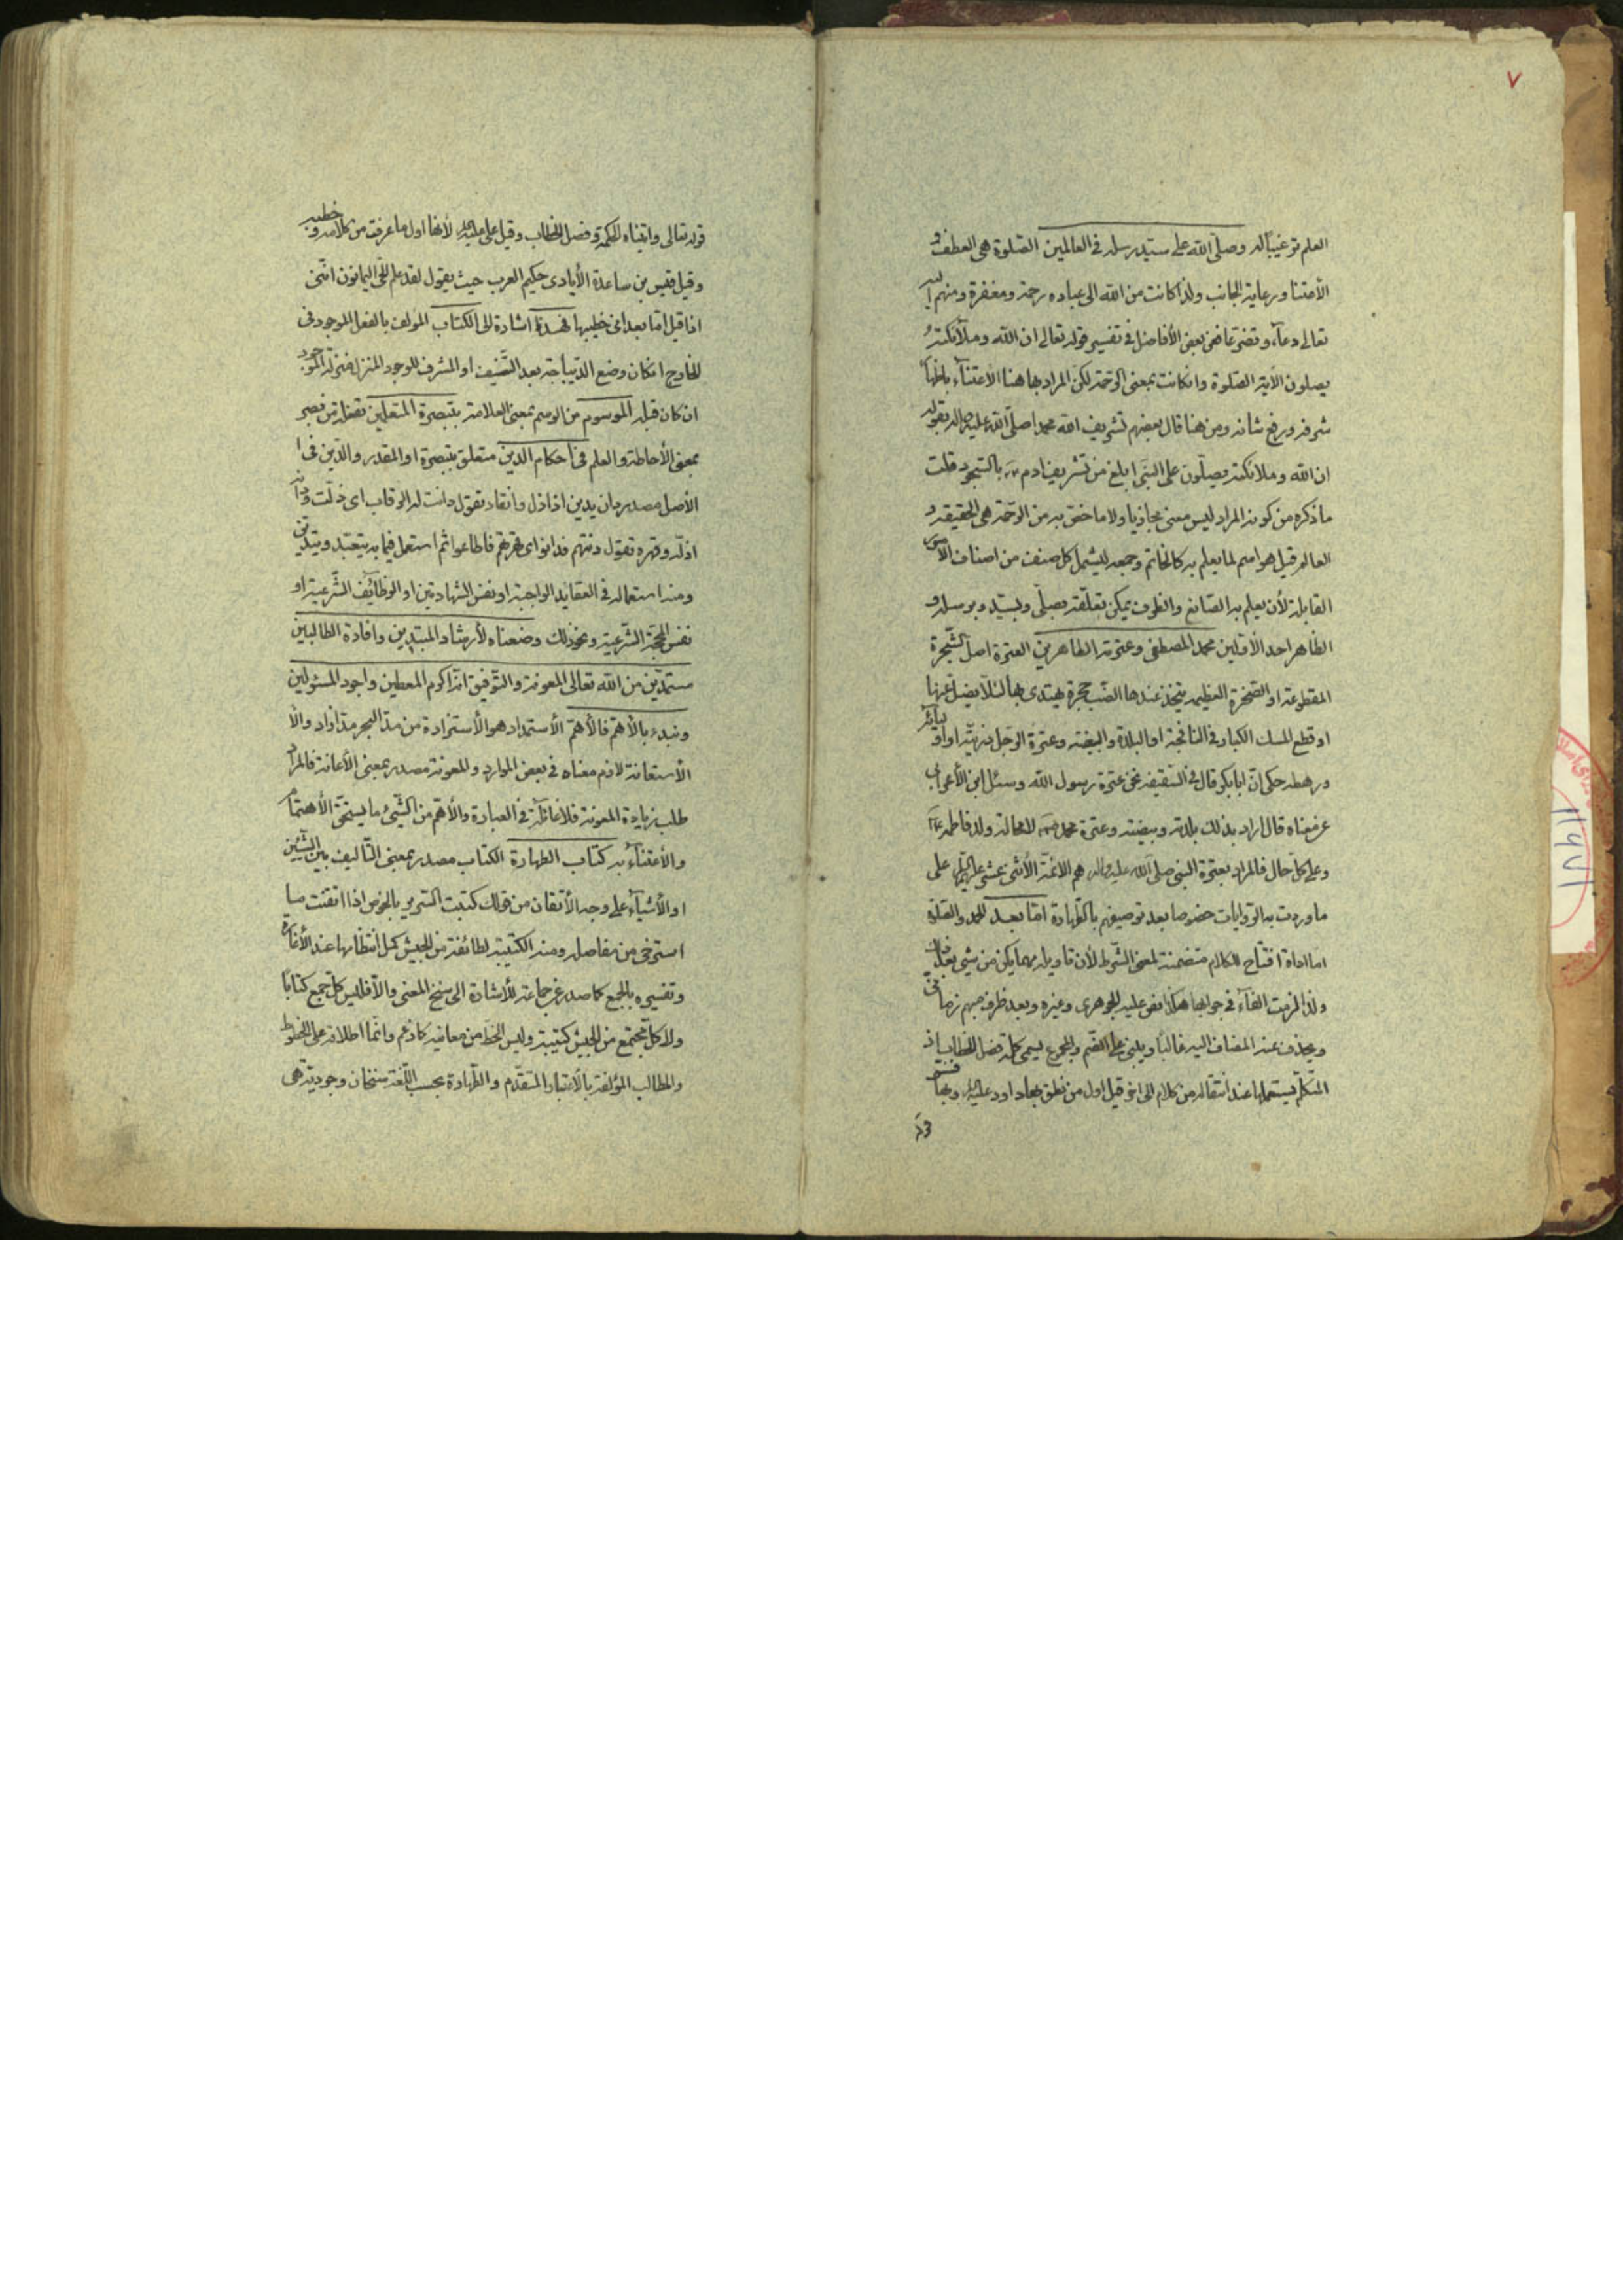 ٧
العلم ترغيبا له وصلى الله على سيد رسله في العالمين الصلوة هي العطف و
الأعتنا ورعاية الجانب ولذا كانت من الله الى عباده رحمة ومغفرة ومنهم اليه
تعالى دعاء وتضرعا فعن بعض الأفاضل في تفسير قوله تعالى ان الله وملائكته
يصلون الآية الصلوة وان كانت بمعنى الرحمة لكن المراد بها هنا الاعتناء باظهار
شرفه ورفع شانه ومن هنا قال بعضهم تشريف الله محمدا صلى الله عليه واله بقوله
ان الله وملائكته يصلون على النبي ابلغ من تشريف ادم بالسجود قلت
ما ذكره من كونه المراد ليس معنى مجازيا ولا ما حقق به من الرحمة هي الحقيقة و
العالم قيل هو اسم لما يعلم به كالخاتم وجمعه ليشمل كل صنف من اصناف الأجناس
القابلة لأن يعلم به الصانع والظرف يمكن تعلقه بصلى وبسيد وبرسله و
الظاهر احد الأولين محمد المصطفى وعترته الطاهرين العترة اصل الشجرة
المقطوعة او الصخرة العظيمة يتخذ عندها الضب حجرة يهتدى بها لئلا يضل عنها
او قطع المسك الكبار في النافجة او البلدة والبيضة وعترة الرجل ذريته او اقربائه
ورهطه حكى ان ابابكر قال في السقيفة نحن عترة رسول الله وسئل ابن الأعرابي
عن معناه قال اراد بذلك بلدته وبيضته وعترة محمد لا محالة ولد فاطمة
وعلى كل حال فالمراد بعترة النبي صلى الله عليه واله هم الائمة الأثنى عشر عليهم السلام على
ما وردت به الروايات خصوصا بعد توصيفهم بالطهارة اما بعد الحمد والصلوة
اما اداة افتتاح للكلام متضمنة لمعنى الشرط لأن تاويله مهما يكن من شيء بعد ذلك
ولذا لزمت الفاء في جوابها هكذا نص عليه الجوهري وغيره وبعد ظرف مبهم زماني
ويحذف عنه المضاف اليه غالبا ويبنى على الضم والمجموع يسمى كلمة فصل الخطاب اذ
المتكلم يستعملها عند انتقاله من كلام الى اخر قيل اول من نطق بها داود عليه السلام وبها فسر
قوله
قوله تعالى واتيناه الحكمة وفصل الخطاب وقيل علي عليه السلام لأنها اول ما عرفت من كلامه وخطبه
وقيل قس بن ساعدة الأيادى حكيم العرب حيث يقول لقد علم الحي اليمانون انني
اذا قيل اما بعد انى خطيبها فهذا اشارة الى الكتاب المولف بالفعل الموجود في
الخارج ان كان وضع الديباجة بعد التصنيف او المشرف للوجود المنزل منزلة الموجود
ان كان قبله الموسوم من الوسم بمعنى العلامة بتبصرة المتعلمين تفعلة من بصر
بمعنى الأحاطة والعلم في احكام الدين متعلق بتبصرة او المقدر والدين في ا
الأصل مصدر دان يدين اذا ذل وانقاد تقول دانت له الرقاب اى ذلت ودانه
اذله وقهره تقول دنتهم فدانوا اى قهرتهم فاطاعوا ثم استعمل فيما به يتعبد ويتدين
ومنه استعماله في العقايد الواجبة او نفس الشهادتين او الوظائف الشرعية او
نفس الحجة الشرعية ونحو ذلك وضعناه لأرشاد المبتدين وافادة الطالبين
مستمدين من الله تعالى المعونة والتوفيق انه اكرم المعطين واجود المسئولين
ونبدء بالأهم فالأهم الأستمداد هو الأستزادة من مد البحر مدا زاد والأ
الأستعانة لازم معناه في بعض الموارد والمعونة مصدر بمعنى الأعانة فالمراد
طلب زيادة المعونة فلا غائلة في العبارة والأهم من الشيء ما يستحق الأهتمام
والأعتناء به كتاب الطهارة الكتاب مصدر بمعنى التاليف بين الشيئين
او الأشياء على وجه الأتقان من قولك كتبت السرير بالخوص اذا اتقنت ما
استرخى من مفاصله ومنه الكتيبة لطائفة من الجيش كمل انتظامها عند الأغارة
وتفسيره بالجمع كما صدر عن جماعة للأشارة الى سنخ المعنى والا فليس كل جمع كتابا
ولا كل مجتمع من الجيش كتيبة وليس الخط من معانيه كما زعم وانما اطلاقه على الخطوط
والمطالب المؤلفة بالأعتبار المتقدم والطهارة بحسب اللغة سنخان وجودية هي